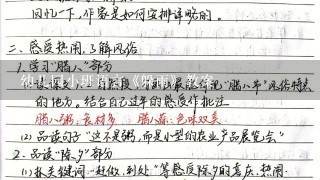 回忆一下,作家是如何安排详略的。
二、感受热闹,了解风俗
1.学习“腊八”部分
的地方。结合自己过年的感受作批注
腊八粥:食材多 腊八蒜:色味双美
(2)品读句子“这不是粥,而是小型的农业产品展览会”
2.品读“除夕”部分
(1)抓关键词“赶做,到处”等感受除夕的喜庆、热闹